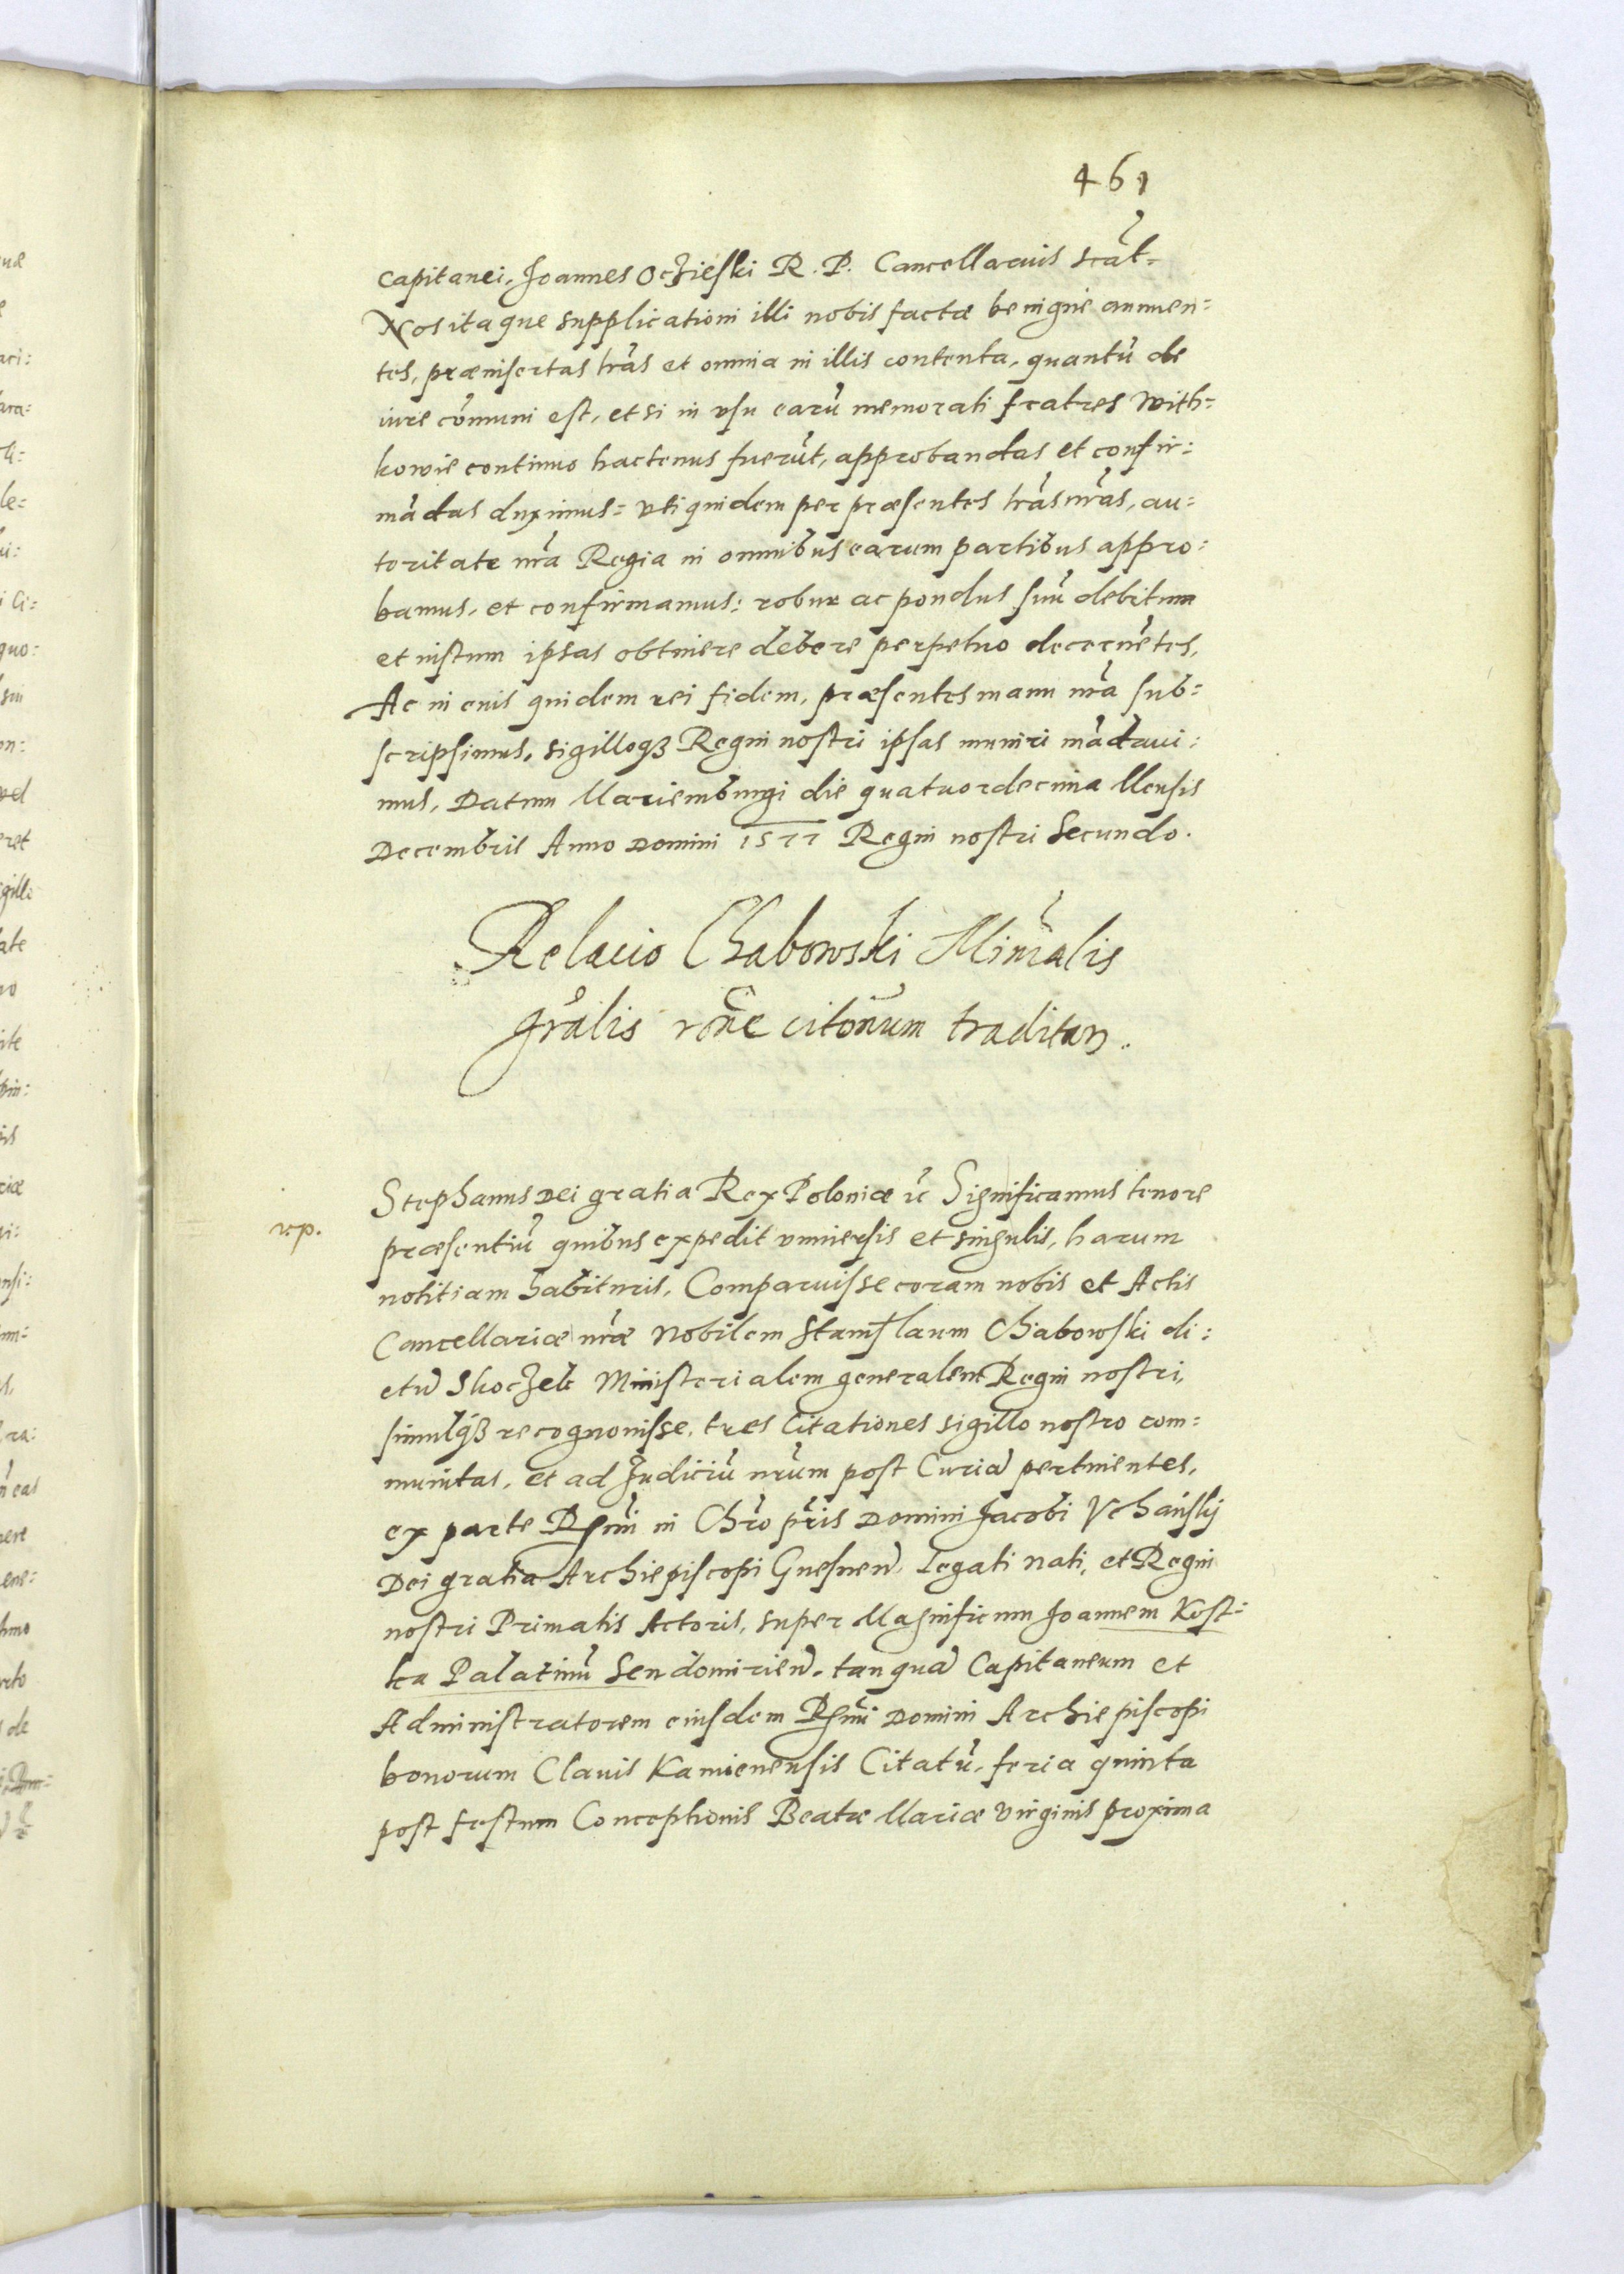 461
capitanei, Joannes Oczieski R. P. Cancellarius scāt=
Nos itaque supplicationi illi nobis factæ benigne annuen=
tes, præinsertas lrās et omnia in illis contenta, quantū de
iure cōmuni est, et si in vsu earū memorati fratres With=
kowie continuo hactenus fuerūt, approbandas et confir=
mādas duximus: vti quidem per præsentes lrās nrās, au=
toritate nrā Regia in omnibus earum partibus appro:
bamus, et confirmamus: robur ac pondus suū debitum
et iustum ipsas obtinere debere perpetuo decernētes,
Ac in cuius quidem rei fidem, præsentes manu nrā sub=
scripsimus, sigilloqȝ Regni nostri ipsas muniri mādaui:
mus, Datum Mariemburgi die quatuordecima Mensis
Decembris Anno Domini 1577 Regni nostri Secundo.
Relacio Chabowski Minrālis
grālis rōne citōnum traditar.
Stephanus Dei gratia Rex Poloniæ ēc Significamus tenore
r.p.
præsentiū quibus expedit vniuersis et singulis, harum
notitiam habituris, Comparuisse coram nobis et Actis
Cancellariæ nræ Nobilem Stanislaum Chabowski di:
ctū Skoczek Ministerialem generalem Regni nostri,
simulqȝ recognouisse, tres Citationes sigillo nostro com=
munitas, et ad Judiciū nrūm post Curiā pertinentes,
ex parte Rsmī in Chrō prīs Domini Jacobi Vchański
Dei gratia Archiepiscopi Gnesneñ. Legati Nati, et Regni
nostri Primatis Actoris, super Magnificum Joannem Kost=
ka Palatinū Sendomirieñ. tanquā Capitaneum et
Administratorem eiusdem Rsmī Domini Archiepiscopi
bonorum Clauis Kamienensis Citatū, feria quinta
post festum Conceptionis Beatæ Mariæ Virginis proxima